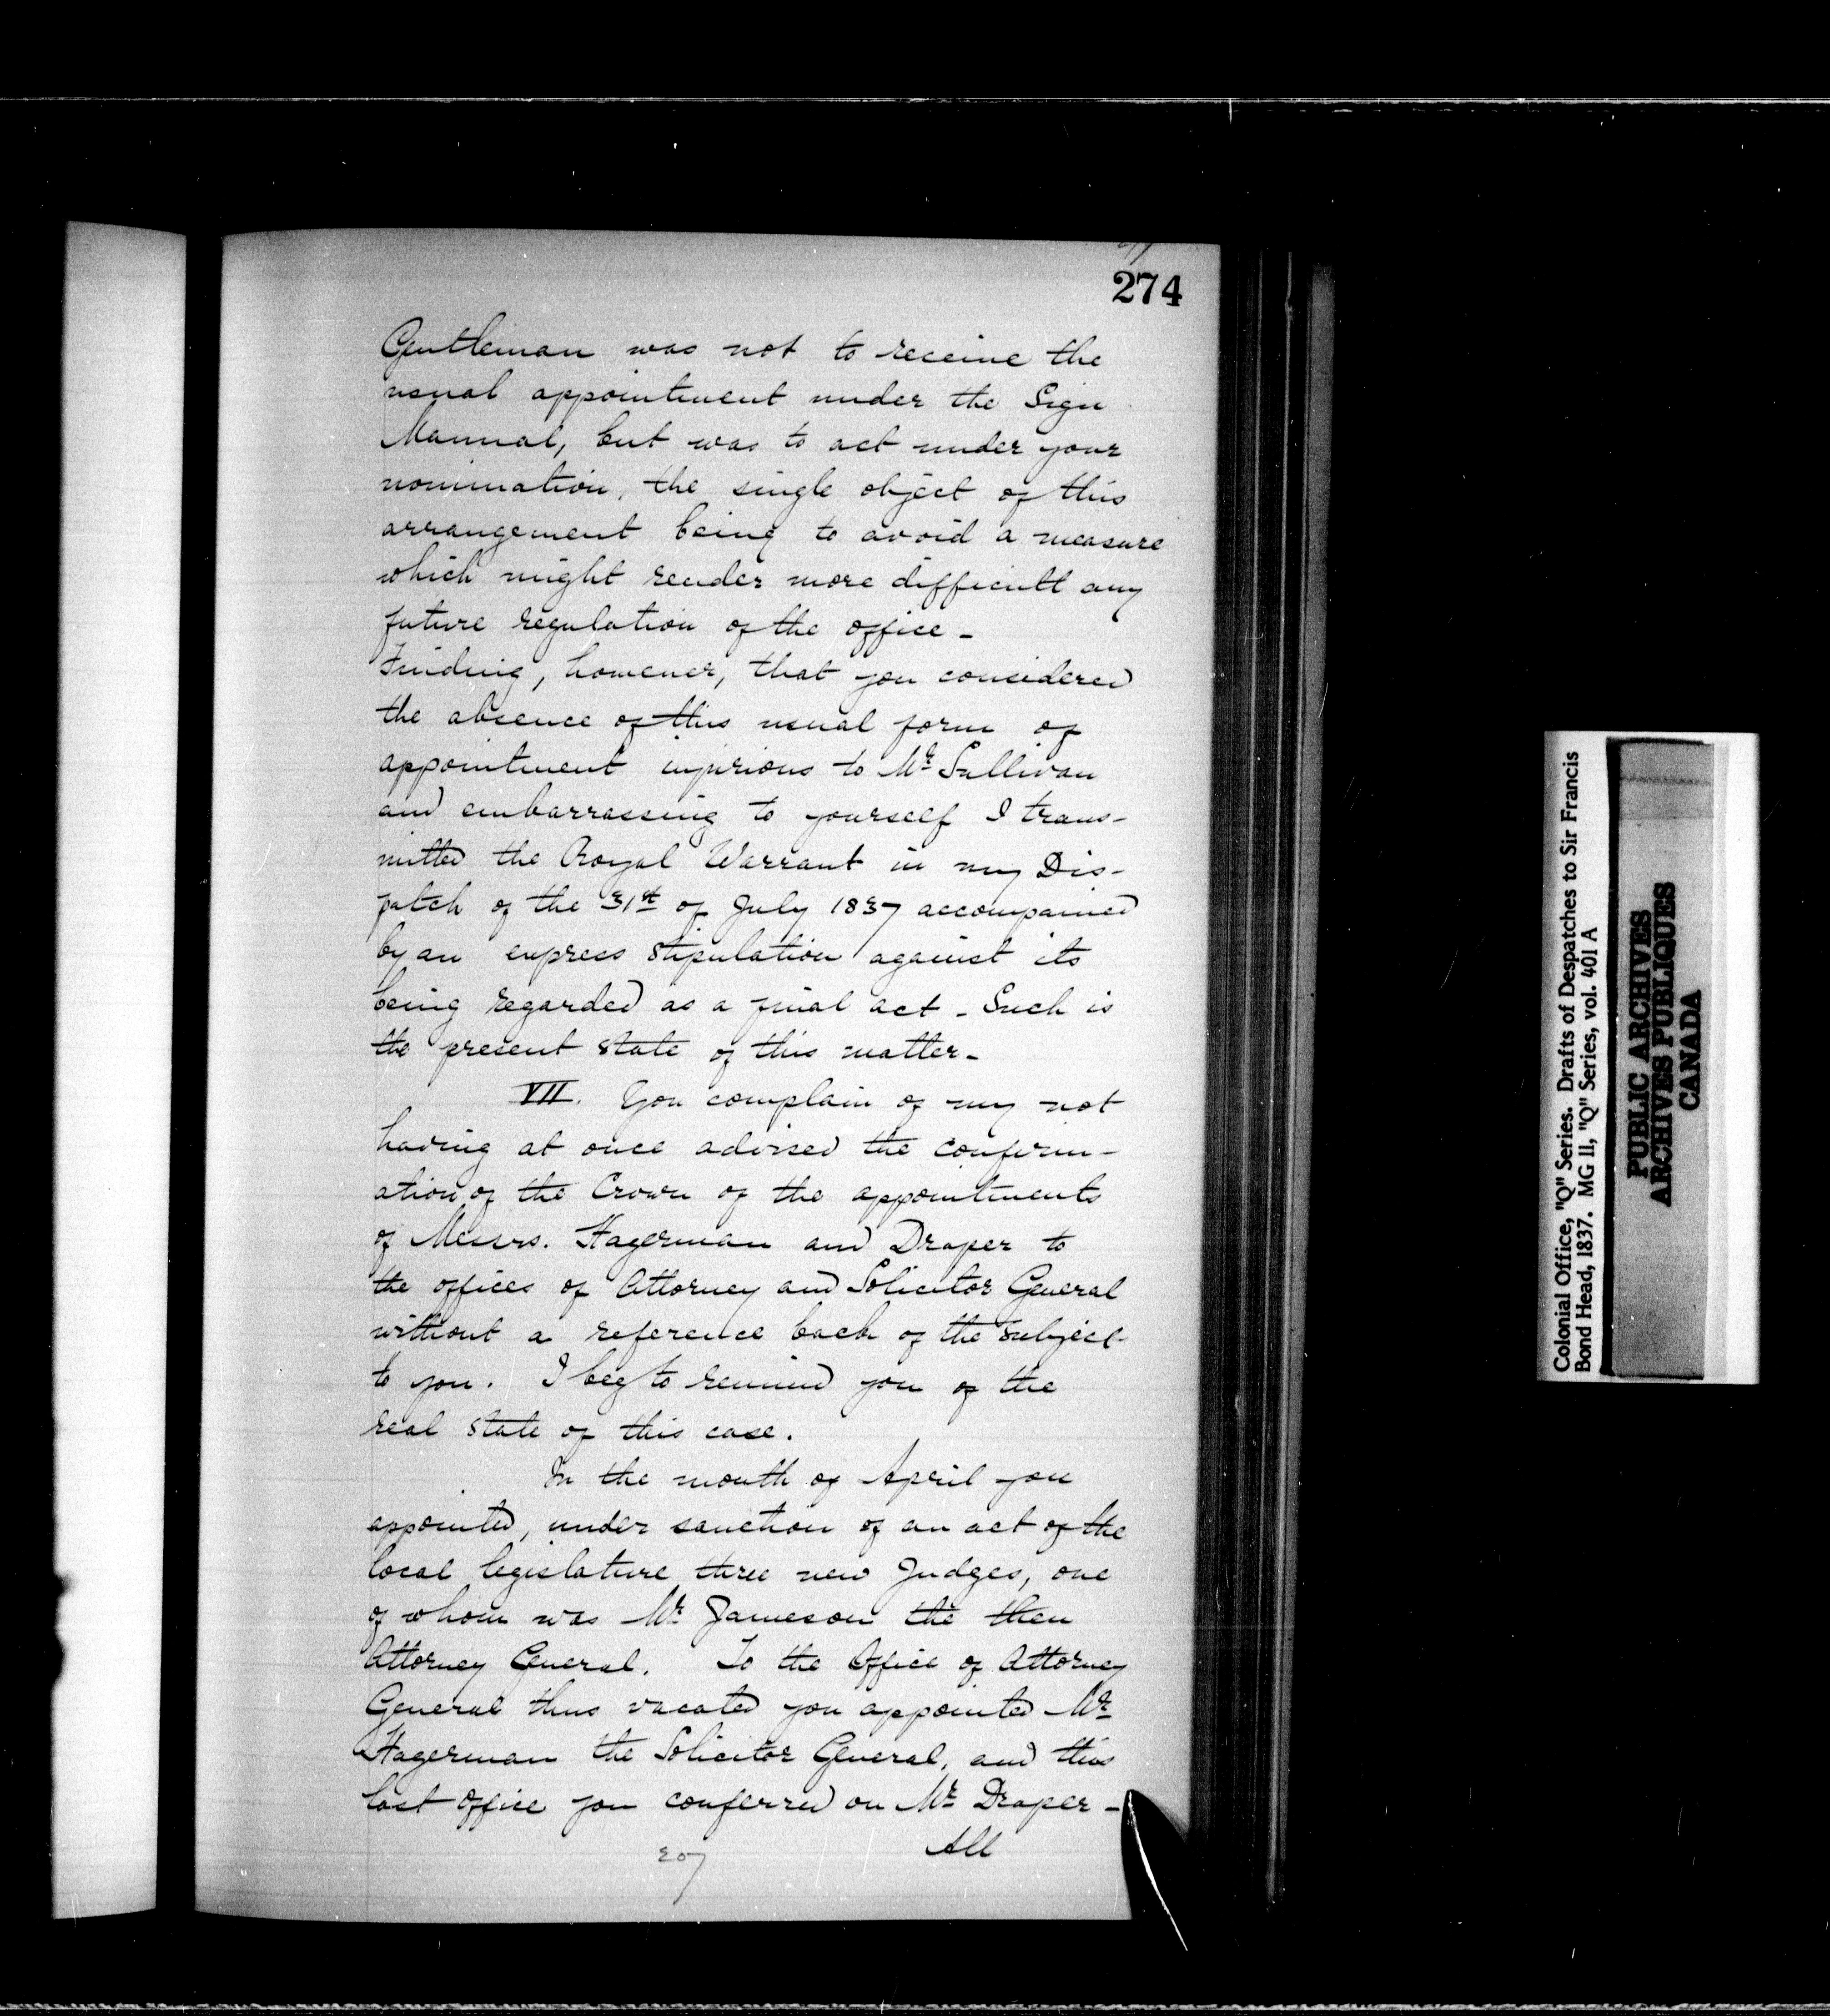 274
Gentleman was not to receive the
usual appointment under the Sign
Manual, but was to act under your
nomination, the single object of this
arrangement being to avoid a measure
which might render more difficult any
future regulation of the office -
Finding, however, that you considered
the absence of this usual form of
appointment injurious to Mr Sullivan
and embarrassing to yourself I trans-
mitted the Royal Warrant in my Dis-
patch of the 31st of July 1837 accompanied
by an express stipulation against its
being regarded as a final act - Such is
the present state of this matter -
VII. You complain of my not
having at once advised the confirm-
ation of the Crown of the appointments
of Messrs. Hagerman and Draper to
the offices of Attorney and Solicitor General
without a reference back of the subject
to you. I beg to remind you of the
real state of this case.
In the month of April you
appointed, under sanction of an act of the
local legislature three new Judges, one
of whom was Mr Jameson the then
Attorney General. To the Office of Attorney
General thus vacated you appointed Mr
Hagerman the Solicitor General, and this
last office you conferred on Mr Draper -
All
207
Colonial Office, "Q" Series. Drafts of Despatches to Sir Francis
Bond Head, 1837. MG 11, "Q" Series, vol. 401 A
PUBLIC ARCHIVES
ARCHIVES PUBLIQUES
CANADA